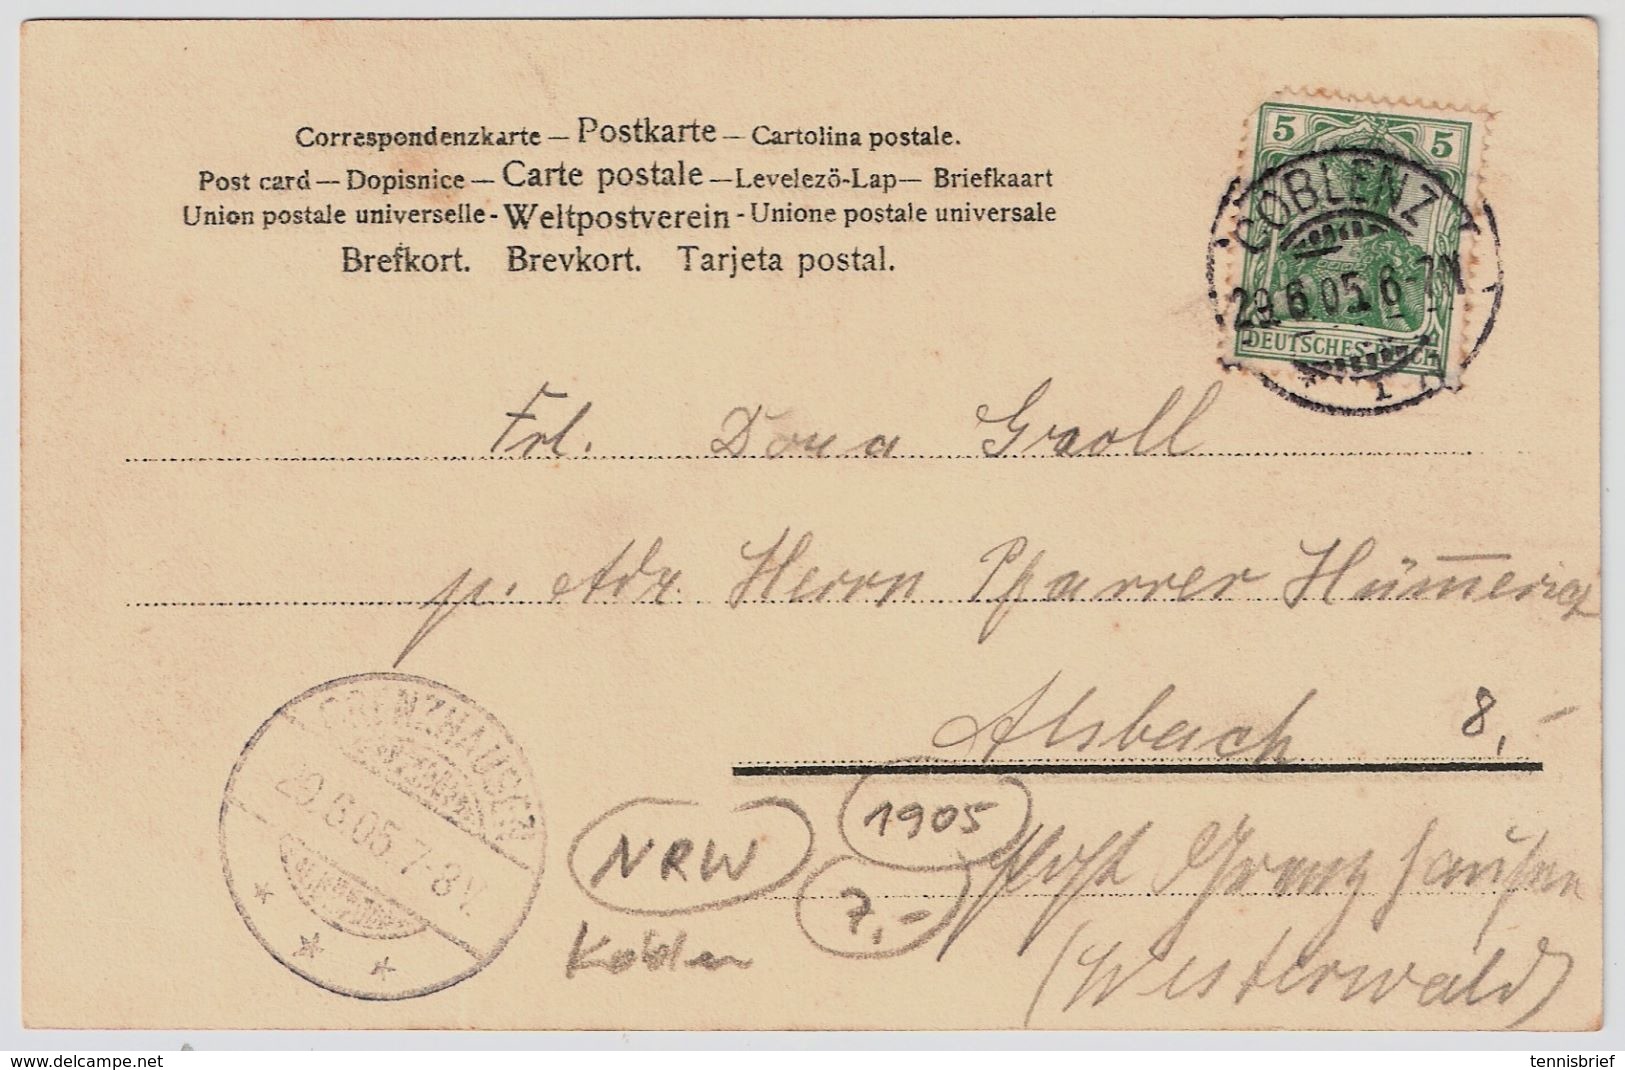 Correspondenzkarte — Postkarte — Cartolina postale.
Post card — Dopisnice — Carte postale — Levelezö-Lap — Briefkaart
Union postale universelle - Weltpostverein - Unione postale universale
Brefkort. Brevkort. Tarjeta postal.
5 5
DEUTSCHES REICH
COBLENZ
29.6.05. 6-7N
1
Frl. Dora Groll
p. Adr. Herrn Pfarrer
Alsbach
8,-
GRENZHAUSEN
29.6.05. 7-8V.
NRW
1905
7,-
Post Grenzhausen
(Westerwald)
delcampe.net
tennisbrief